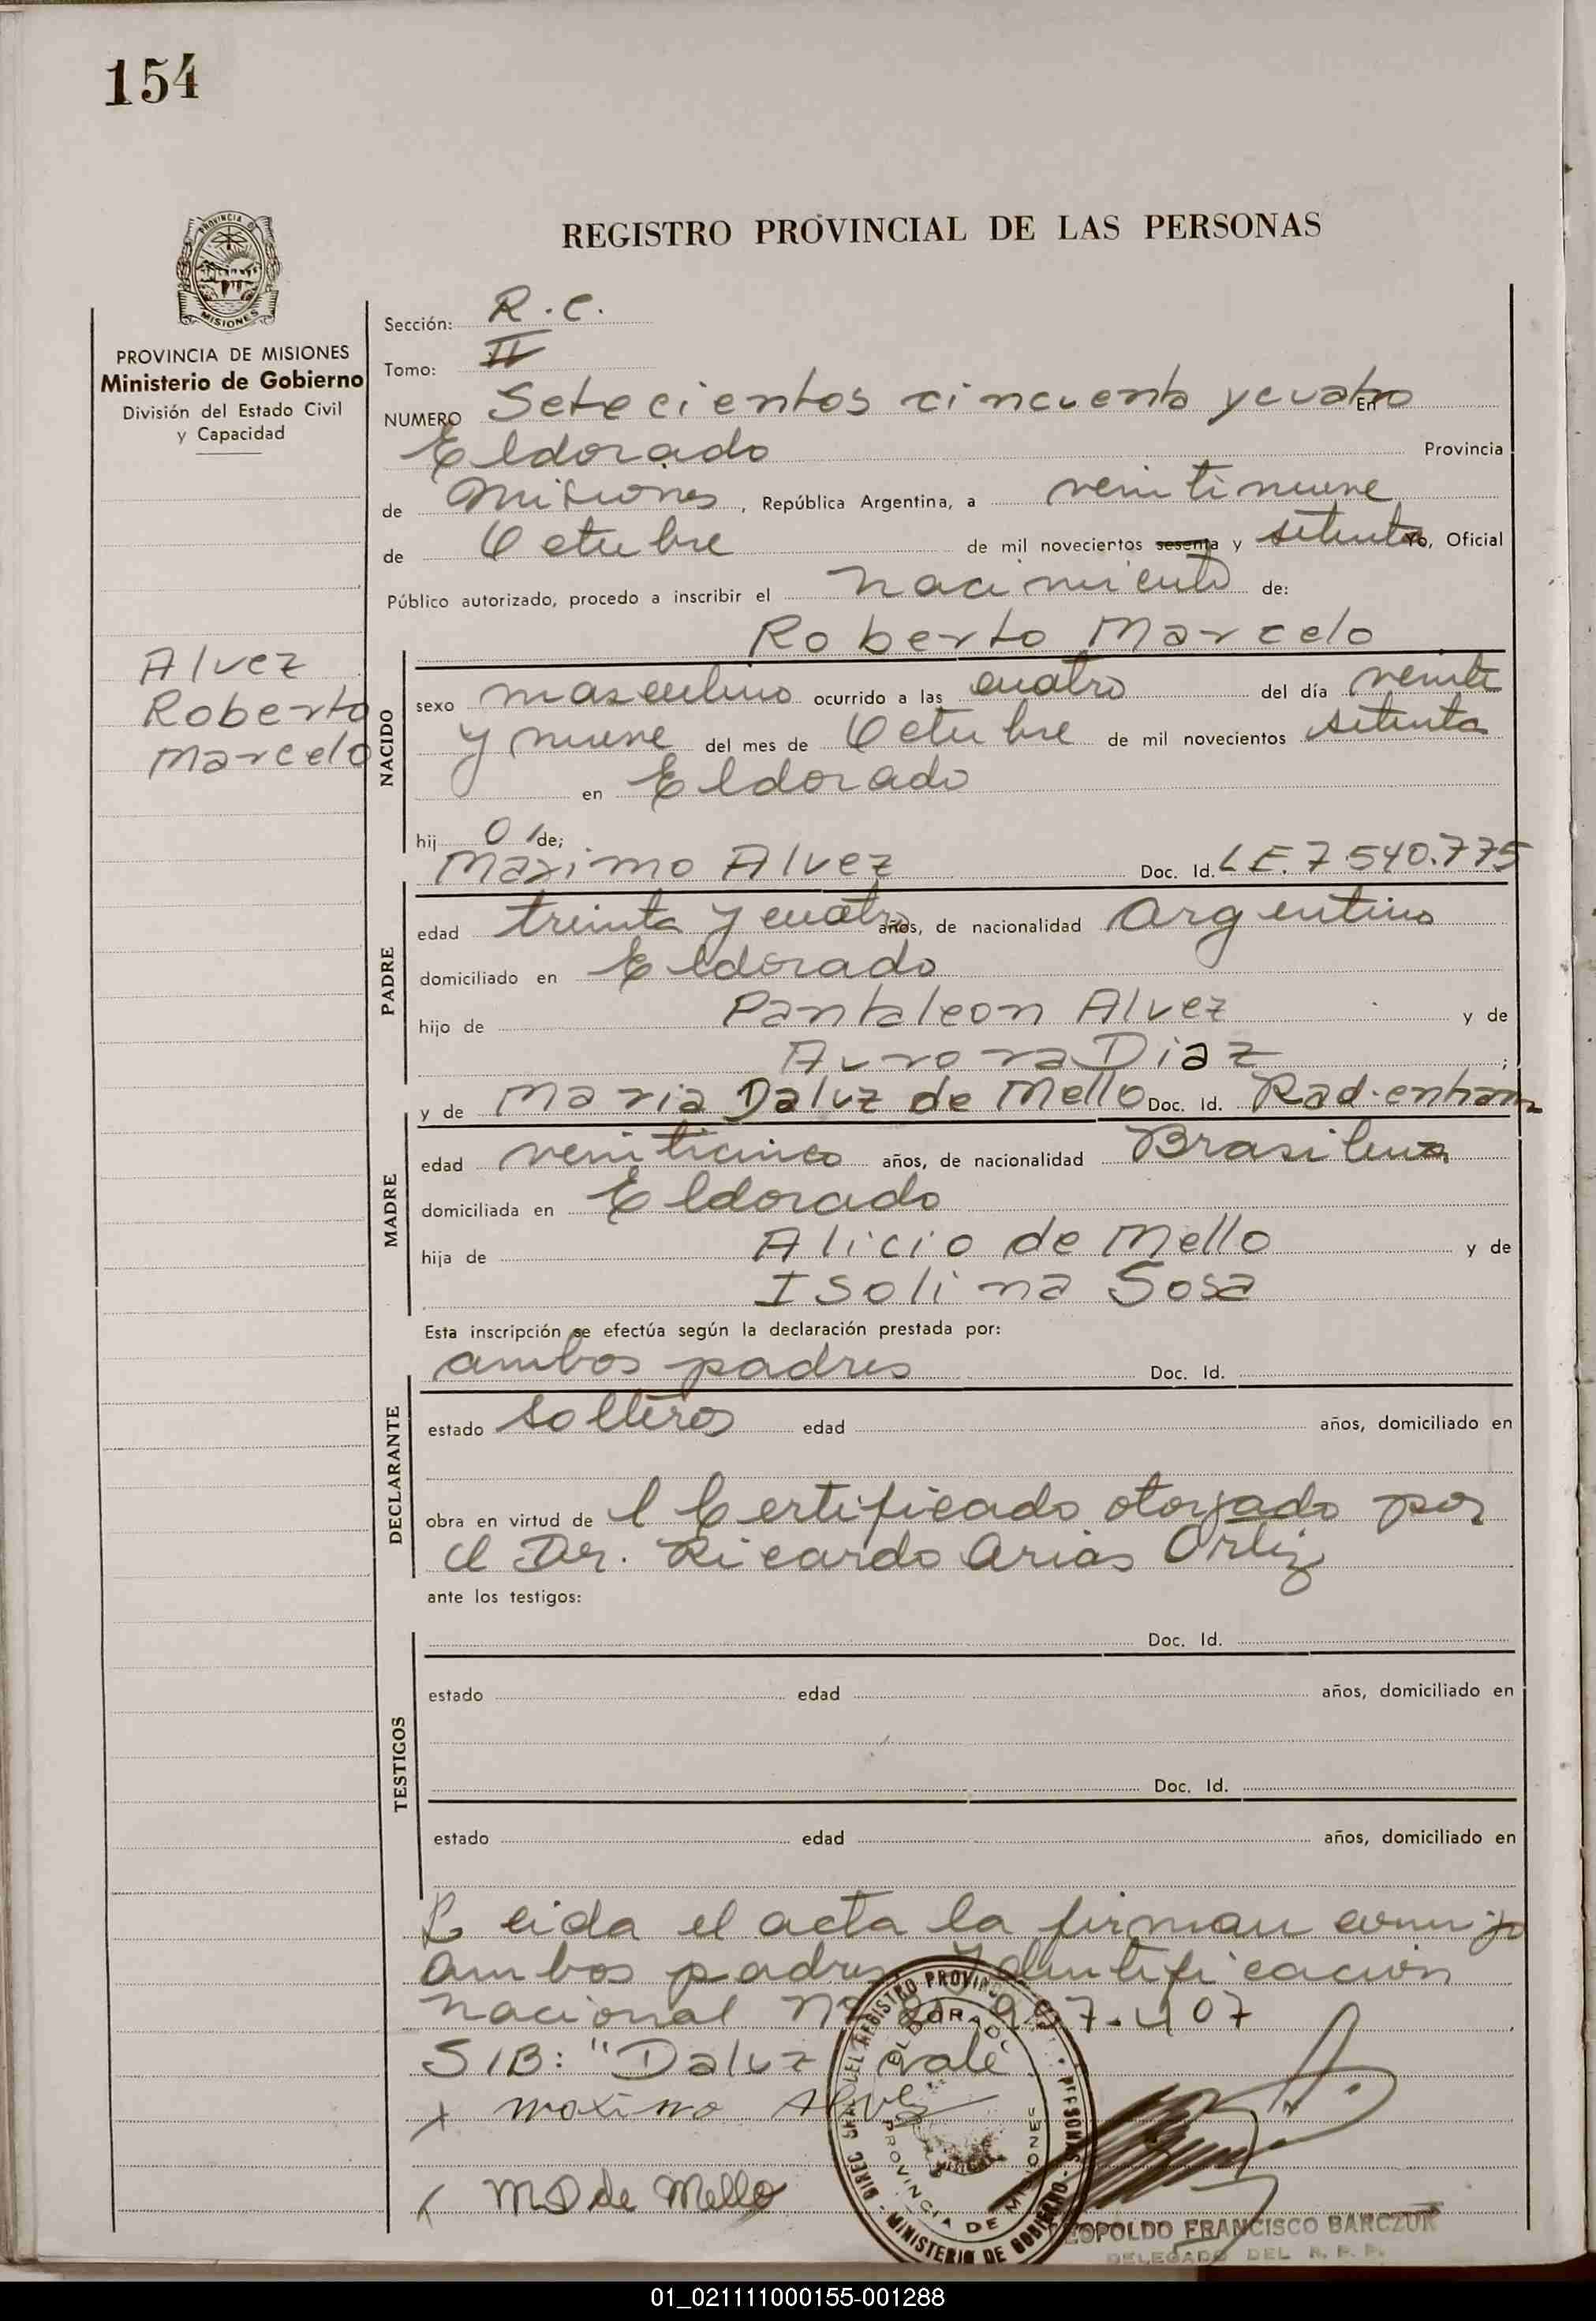 154
REGISTRO PROVINCIAL DE LAS PERSONAS
PROVINCIA DE MISIONES
Ministerio de Gobierno
División del Estado Civil
y Capacidad
Alvez
Roberto
Marcelo
Sección: R.C.
Tomo: II
NUMERO Setecientos cincuenta y cuatro En
Eldorado Provincia
de Misiones, República Argentina, a veintinueve
de Octubre de mil noveciertos sesenta y setenta Yo, Oficial
Público autorizado, procedo a inscribir el nacimiento de:
Roberto Marcelo
NACIDO
sexo masculino ocurrido a las cuatro del día veinte
y nueve del mes de Octubre de mil novecientos setenta
en Eldorado
hij o de;
Maximo Alvez Doc. Id. LE. 7540.775
PADRE
edad treinta y cuatro años, de nacionalidad Argentino
domiciliado en Eldorado
hijo de Pantaleon Alvez y de
Aurora Diaz ;
y de Maria Daluz de Mello Doc. Id. Rad. en tram
MADRE
edad veinticinco años, de nacionalidad Brasilena
domiciliada en Eldorado
hija de Alicio de Mello y de
Isolina Sosa
Esta inscripción se efectúa según la declaración prestada por:
ambos padres Doc. Id.
DECLARANTE
estado solteros edad años, domiciliado en
obra en virtud de l Certificado otorgado por
el Dr. Ricardo Arias Ortiz
ante los testigos:
Doc. Id.
TESTIGOS
estado edad años, domiciliado en
Doc. Id.
estado edad años, domiciliado en
Leida el acta la firman conmigo
ambos padres Identificación
nacional Nº 7.407
S/B: "Daluz" vale
x maximo Alvez
x MD de Mello
DIREC. GRAL. DEL REGISTRO PROVINCIAL PERSONAS - MINISTERIO DE GOBIERNO -
ELDORADO
PROVINCIA DE MISIONES
LEOPOLDO FRANCISCO BARCZUK
DELEGADO DEL R. P. P.
01_021111000155-001288